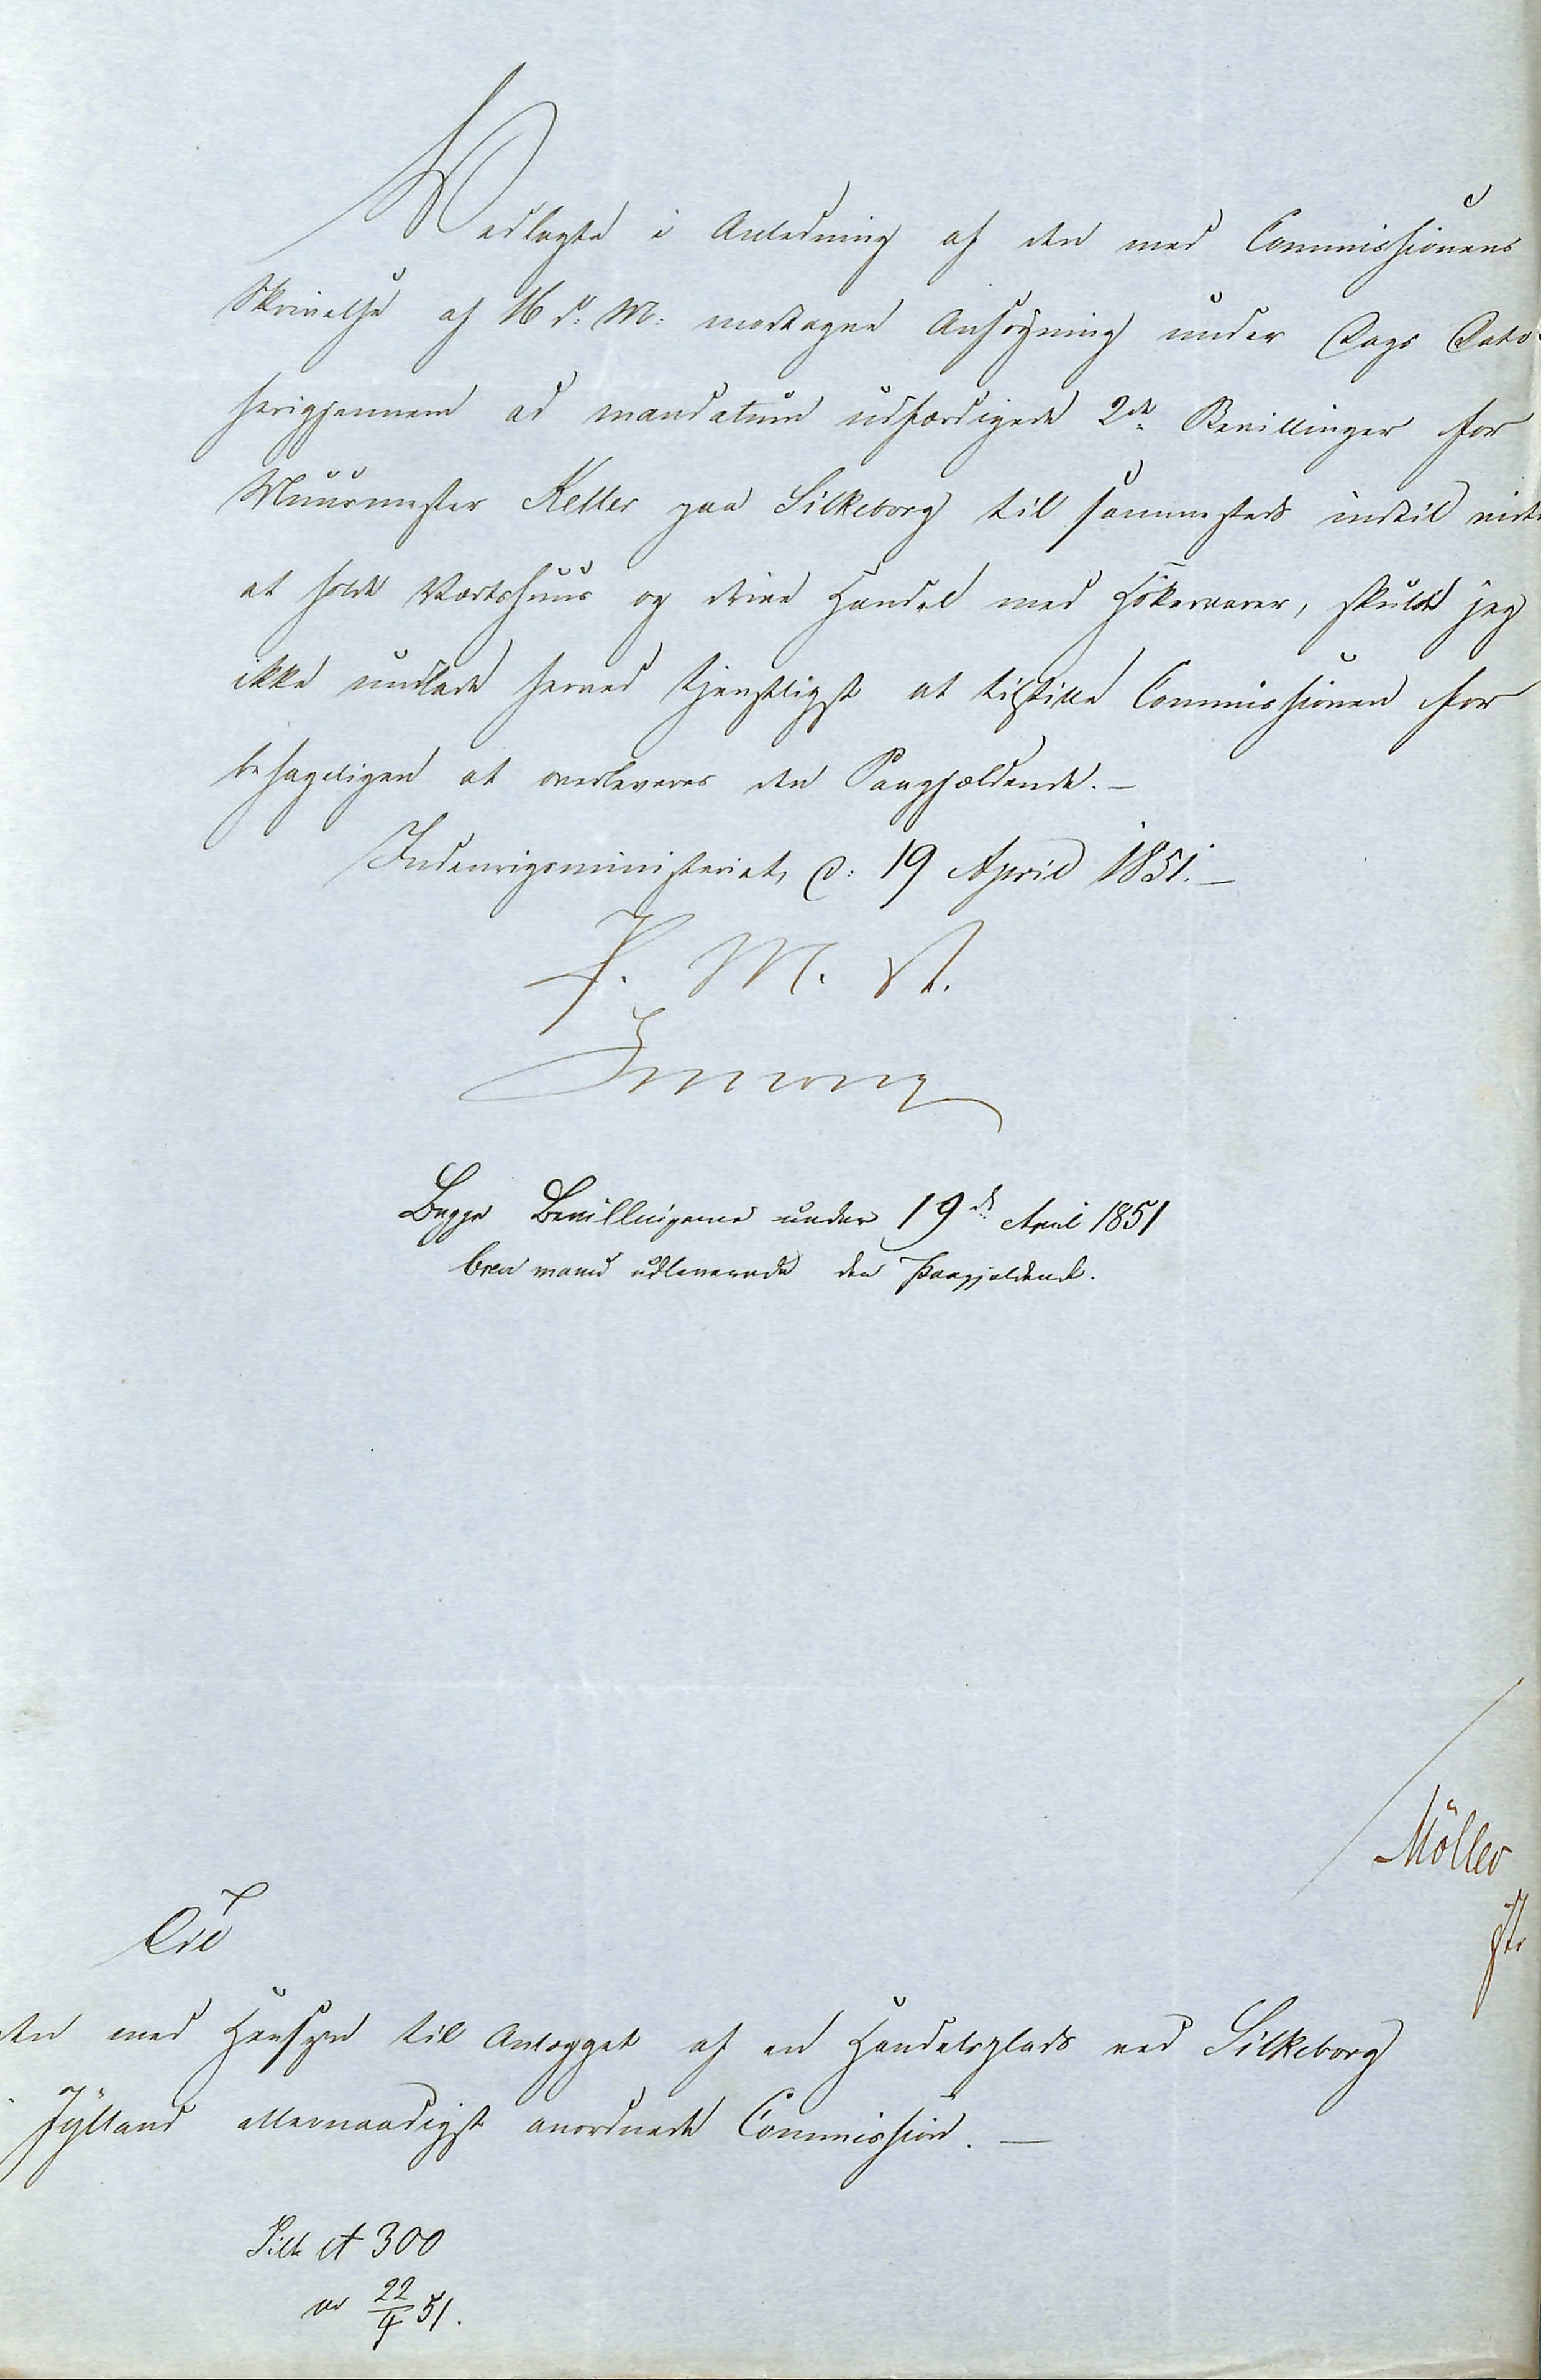 Vedlagte i Anledning af den med Commissionens
Skrivelse af 16 d: M: modtagne Ansøgning under Dags Dato
herigjennem ad mandatum udfærdigede 2de Bevillinger for
Muurmester Keller paa Silkeborg til sammesteds indtil vide
at holde Værtshuus og drive Handel med Hökervarer, skulde jeg
ikke undlade herved tjenstligst at tilstille Commissionen for
behageligen at overleveres den Paagjældende.—
Indenrigsministeriet, d: 19 April 1851.—
P. M. V.
Begge Bevillingerne under 19de April 1851
brevi manu udleverede den Paagjældende.
Möller
Til
den med Hensyn til Anlægget af en Handelsplads ved Silkeborg
i Jÿlland allernaadigst anordnede Commission.—
Silk A 300
22/4 51.